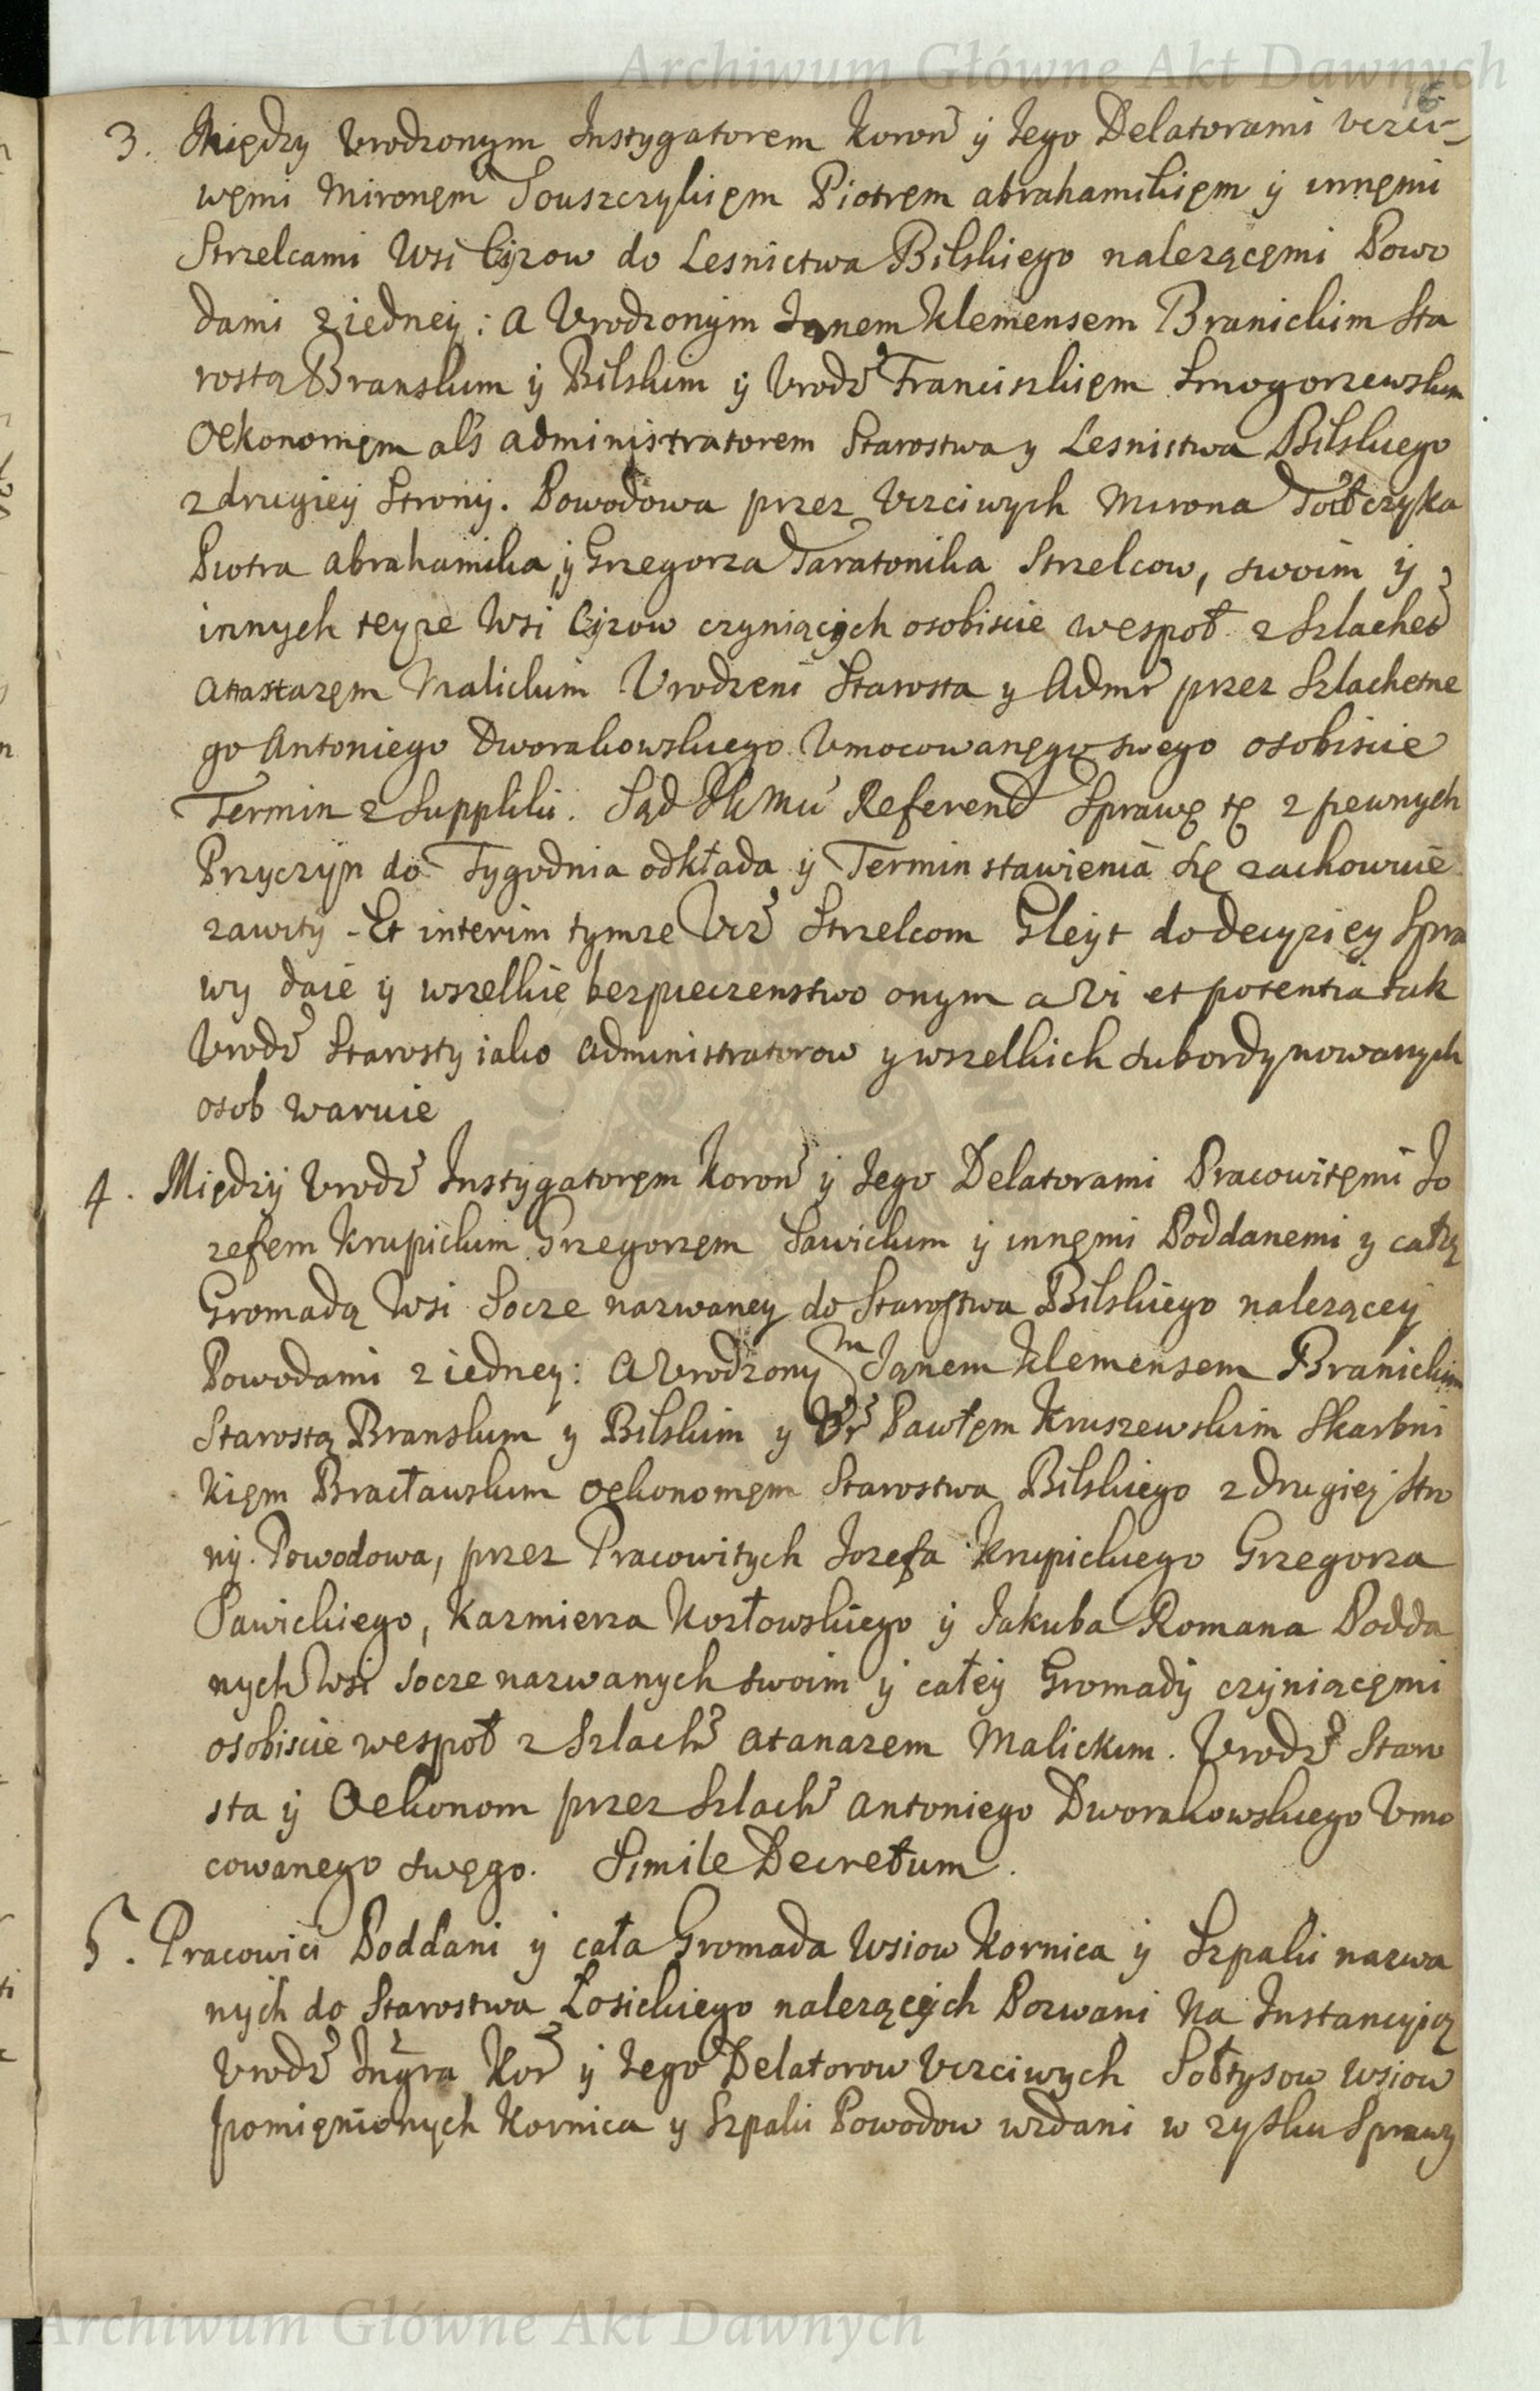 Archiwum Główne Akt Dawnych
16
3. Między Urodzonym Instygatorem Koron y Jego Delatorami Uczci-
wemi Mironęm Touszczykięm Piotrem abrahamikięm y innęmi
Strzelcami Wsi Czyzow do Lesnictwa Bilskiego nalezącęmi Powo
dami z iedney: a Urodzonym Janem Klemensem Branickim Sta
rostą Branskim y Bilskim y Urodz Franciszkięm Smogorzewskim
Oekonomęm als administratorem Starostwa y Lesnictwa Bilskiego
z drugiey Strony. Powodowa przez Uczciwych Mirona Tołtczyka
Piotra abrahamika, y Grzegorza Taratonika Strzelcow, swoim y
innych teyze Wsi Czyzow czyniących osobiscie wespoł z Szlachet
Malickim Urodzeni Starosta y Admr przez Szlachetne
go Antoniego Dworakowskiego Umocowanęgo swego osobiscie
Termin z Suppliki. Sąd Referend Sprawę tę z pewnych
Przyczyn do Tygodnia odkłada y Termin stawienia się zachowuie
zawity - Et interim tymze Ucz Strzelcom Gleyt do decyziey Spra
wy daie y wszelkie bezpieczenstwo onym a vi et potentia tak
Urodz Starosty iako Administratorow y wszelkich subordynowanych
osob waruie
4. Między Urodz Instygatoręm Koron y Jego Delatorami Pracowitęmi Jo
zefem Krupickim Grzegorzęm Sawickim y innęmi Poddanemi y całą
Gromadą Wsi Socze nazwaney do Starostwa Bilskiego nalezącey
Powodami z iedney: a Urodzonym Janem Klemensem Branickim
Starostą Branskim y Bilskim y Ur Pawłęm Kruszewskim Skarbni
kięm Bracławskim Oekonomęm Starostwa Bilskiego z drugiey Stro
ny. Powodowa, przez Pracowitych Jozefa Krupickiego Grzegorza
Sawickiego, Kazmierza Kozłowskiego y Jakuba Romana Podda
nych Wsi Socze nazwanych swoim y całey Gromady czyniącęmi
osobiscie wespoł z Szlach Atanazem Malickim. Urodz Staro
sta y Oekonom przez Szlach Antoniego Dworakowskiego Umo
cowanego swęgo. Simile Decretum.
5. Pracowici Poddani y cała Gromada Wsiow Kornica y Szpaki nazwa
nych do Starostwa Łosickiego nalezących Pozwani Na Instancyią
Urodz Ingra Kor y Jego Delatorow Uczciwych Sołtysow Wsiow
pomięnionych Kornica y Szpaki Powodow wzdani w zysku Sprawy
Archiwum Główne Akt Dawnych